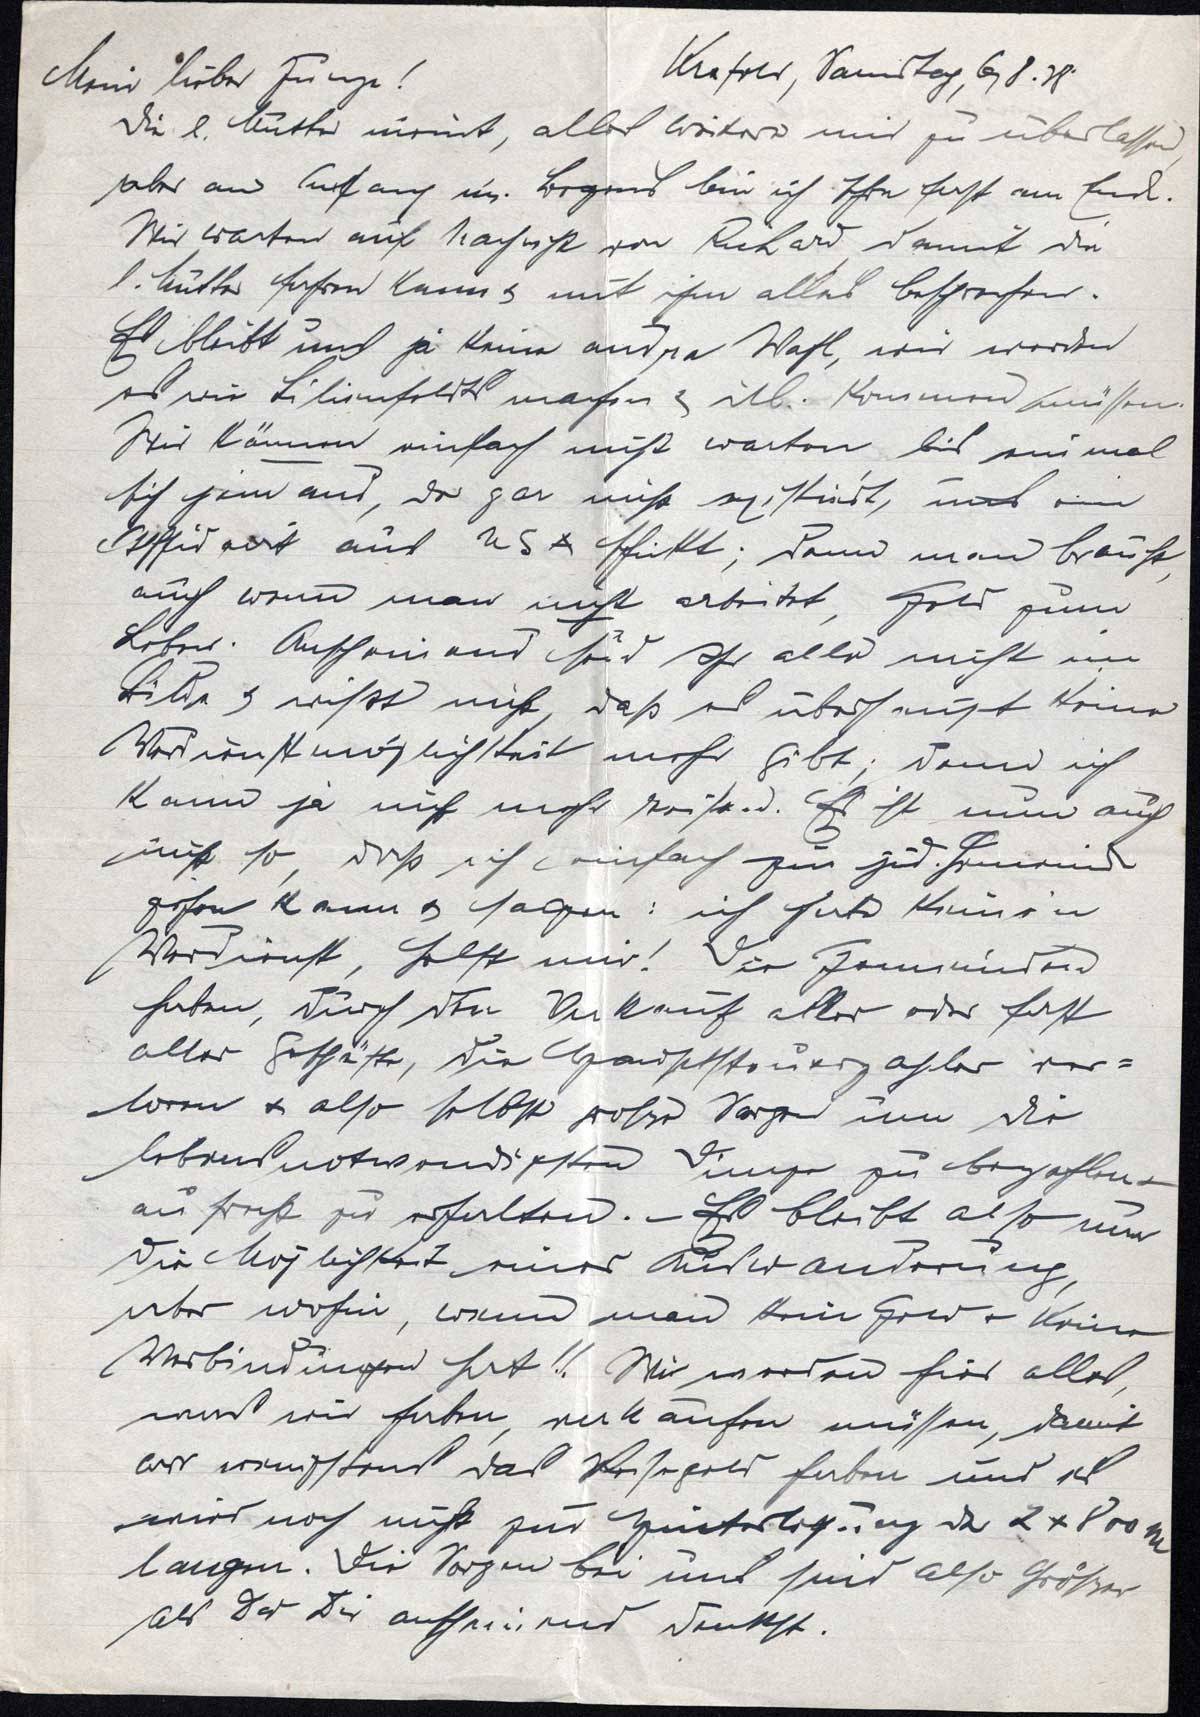 Mein lieber Junge! Krefeld, Samstag, 6/8.38.
Die l. Mutter meint, alles weitere mir zu überlassen,
aber am Anfang m. bin ich fast am Ende.
Wir warten auf Nachricht von Richard, damit die
l. Mutter fahren kann & mit ihm alles besprechen.
Es bleibt uns ja keine andre Wahl, wir werden
es wie Lilienfelds machen & ill. kommen müssen.
Wir können einfach nicht warten bis einmal
sich jemand, der gar nicht existiert, uns ein
Affidavit aus USA schickt; denn man braucht,
auch wenn man nicht arbeitet, Geld zum
Leben. Anscheinend seid Ihr alle nicht im
Bilde & wisst nicht, daß es überhaupt keine
Verdienstmöglichkeit mehr gibt; denn ich
kann ja nicht mehr reisen. Es ist nun auch
nicht so, daß ich einfach zur jüd. Gemeinde
gehen kann & sagen: ich habe keinen
Verdienst, helft mir! Die Gemeinden
haben, durch den Verkauf aller oder fast
aller Geschäfte, die Hauptsteuerzahler ver=
loren & also selbst große Sorgen um die
lebensnotwendigsten Dinge zu bezahlen &
aufrecht zu erhalten. – Es bleibt also nur
die Möglichkeit einer Auswanderung,
aber wohin, wenn man kein Geld & keine
Verbindungen hat!! Wir werden hier alles,
was wir haben, verkaufen müssen, damit
wir wenigstens das Reisegeld haben und es
wird noch nicht zur Hinterlegung der 2 x 800 M
langen. Die Sorgen bei uns sind also größer
als Du Dir anscheinend denkst.